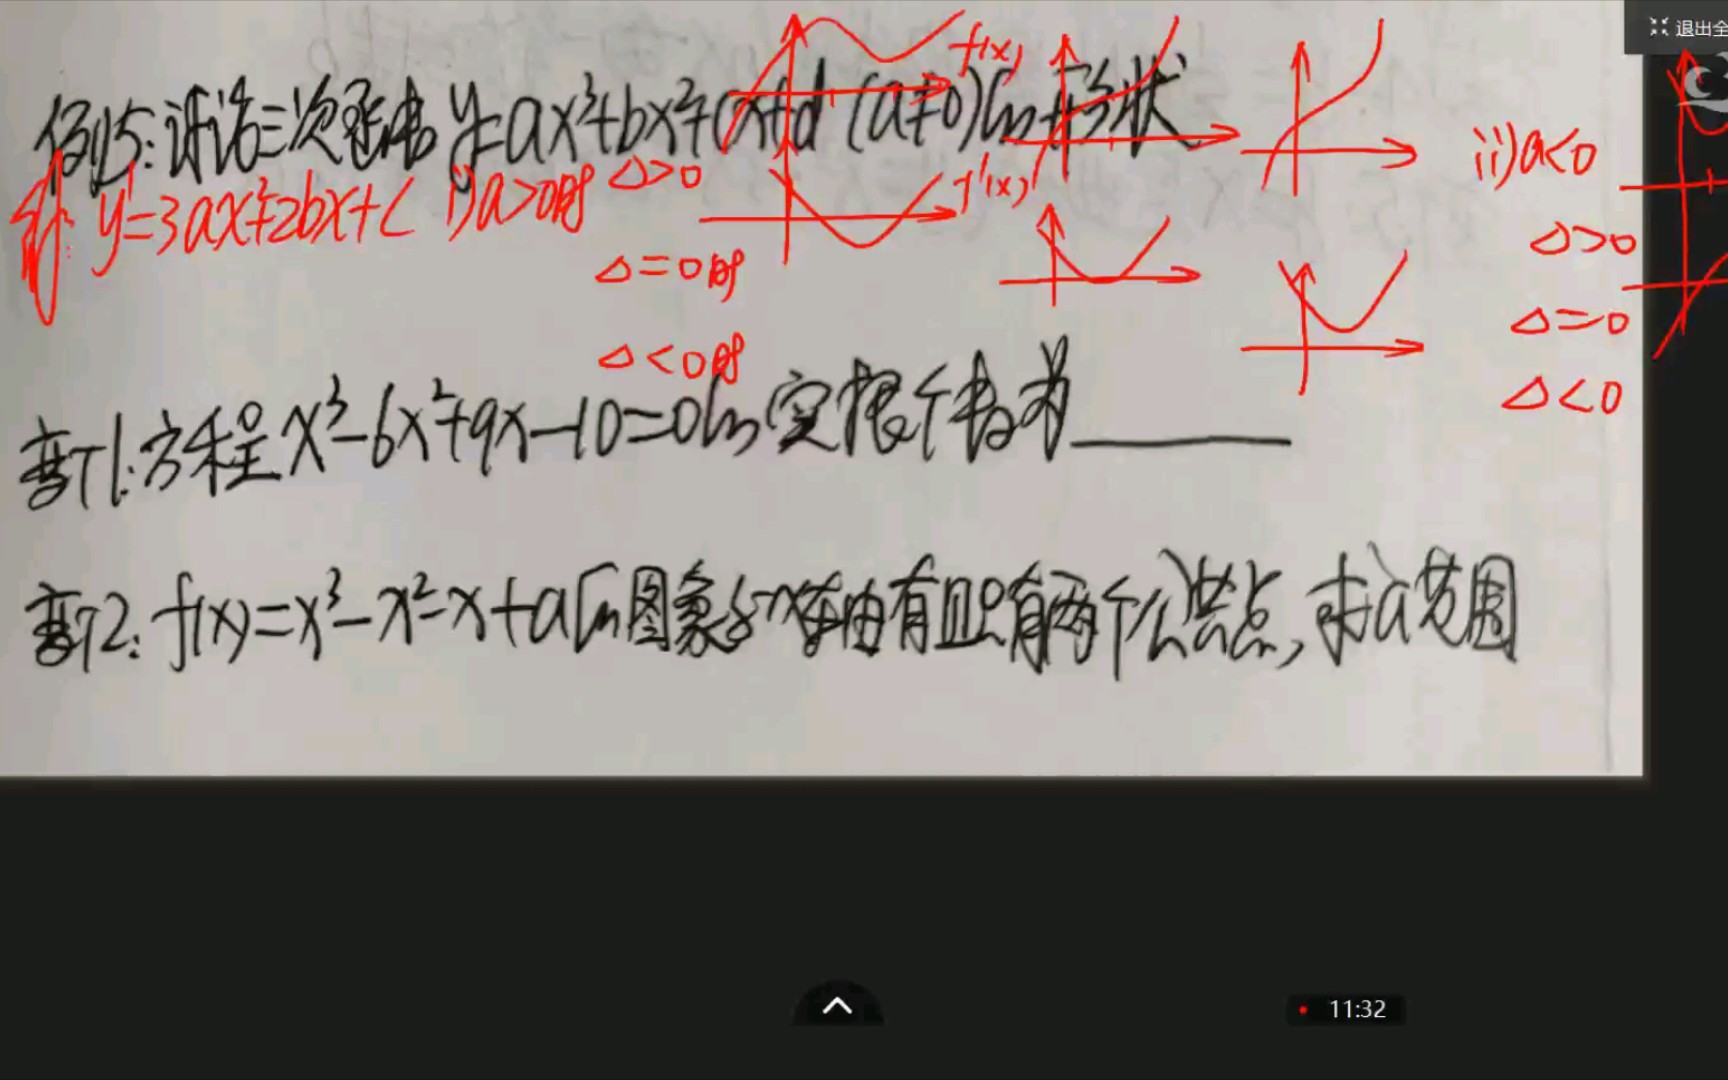 退出全
例5:讨论三次函数 y=ax³+bx²+cx+d (a≠0)的形状
f(x)
解: y'=3ax²+2bx+c i)a>0时 Δ>0
f'(x)
ii)a<0
Δ=0时
Δ>0
Δ<0时
Δ=0
Δ<0
变T1:方程x³-6x²+9x-10=0的实根个数为________
变T2: f(x)=x³-x²-x+a的图象与x轴有且只有两个公共点,求a范围
11:32